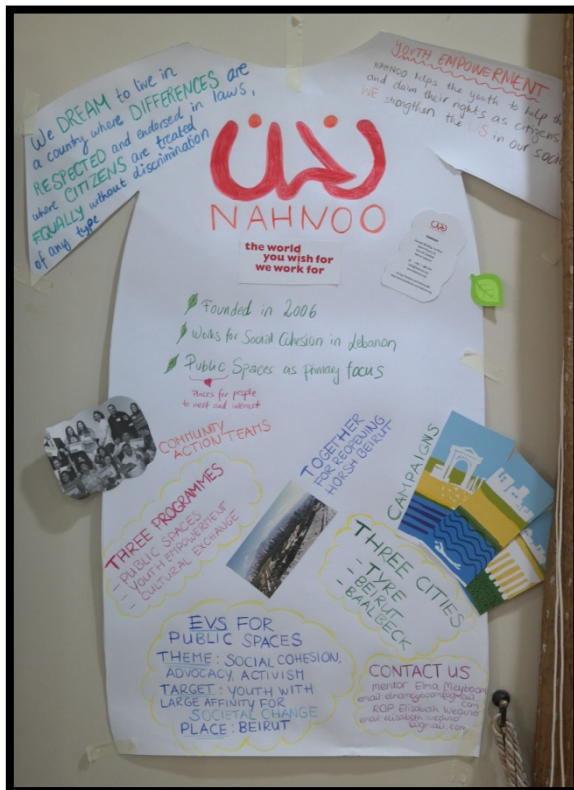 We DREAM to live in
a country where DIFFERENCES are
RESPECTED and endorsed in laws,
where CITIZENS are treated
EQUALLY without discrimination
of any type
YOUTH EMPOWERMENT
NAHNOO helps the youth to help
and claim their rights as citizens
WE strengthen the US in our
نحن
NAHNOO
the world
you wish for
we work for
Founded in 2006
Works for Social Cohesion in Lebanon
Public Spaces as primary focus
Places for people
to meet and interact
COMMUNITY
ACTION TEAMS
TOGETHER
FOR REOPENING
HORSH BEIRUT
CAMPAIGNS
THREE PROGRAMMES
- PUBLIC SPACES
- YOUTH EMPOWERMENT
- CULTURAL EXCHANGE
THREE CITIES
- TYRE
- BEIRUT
- BAALBECK
EVS FOR
PUBLIC SPACES
THEME: SOCIAL COHESION,
ADVOCACY, ACTIVISM
TARGET: YOUTH WITH
LARGE AFFINITY FOR
SOCIETAL CHANGE
PLACE: BEIRUT
CONTACT US
mentor Elma Meyboom
email:
com
Elisabeth
email: